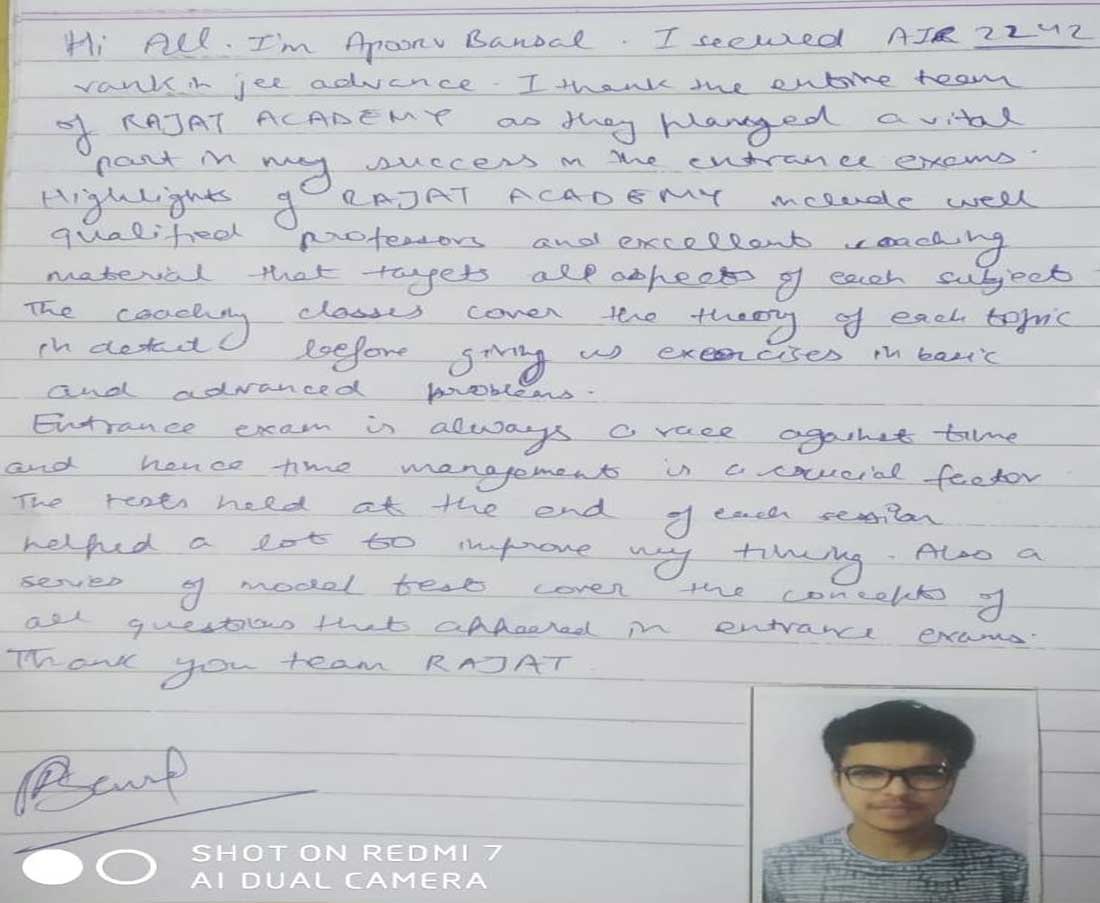 Hi All. I'm Apoorv Bansal. I secured AIR 2242
rank in jee advance. I thank the entire team
of RAJAT ACADEMY as they planyed a vital
part in my success in the entrance exams.
Highlights of RAJAT ACADEMY include well
qualified professors and excellent coaching
material that targets all aspects of each subject
The coaching classes cover the theory of each topic
in detail before giving us exercises in basic
and advanced problems.
Entrance exam is always a race against time
and hence time management is a crucial factor
The tests held at the end of each session
helped a lot to improve my timing. Also a
series of model test cover the concepts of
all questions that appeared in entrance exams.
Thank you team RAJAT
SHOT ON REDMI 7
AI DUAL CAMERA